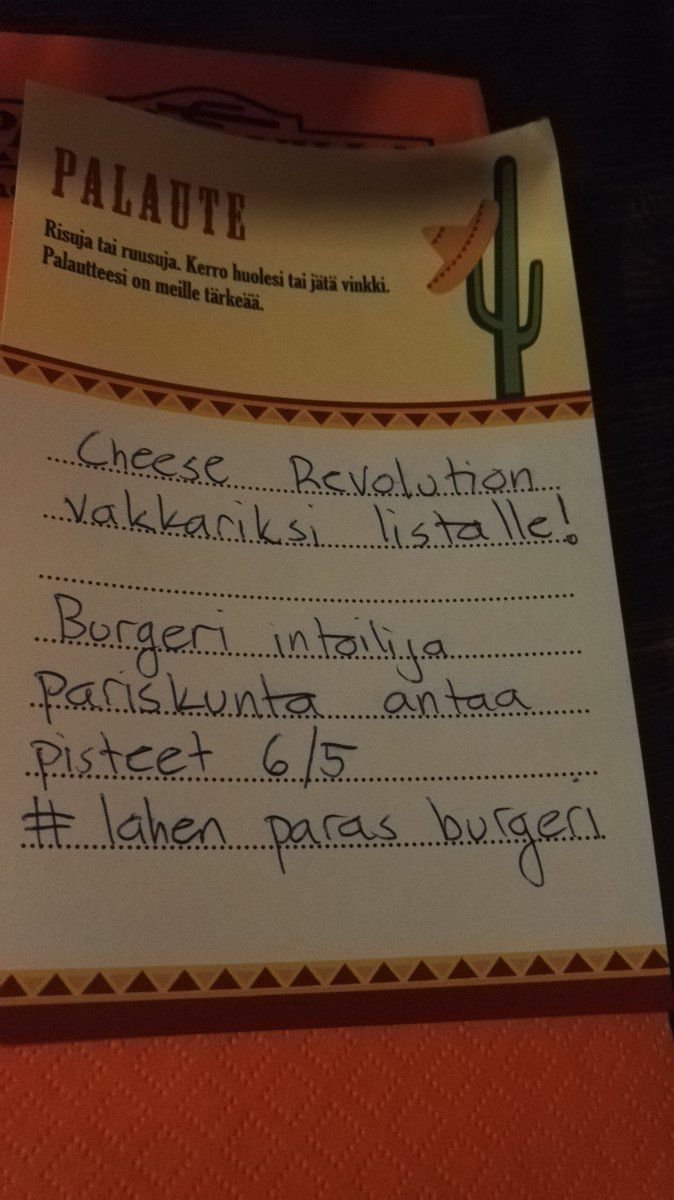 PALAUTE
Risuja tai ruusuja. Kerro huolesi tai jätä vinkki.
Palautteesi on meille tärkeää.
Cheese Revolution
vakkariksi listalle!
Burgeri intoilija
pariskunta antaa
pisteet 6/5
# lahen paras burgeri